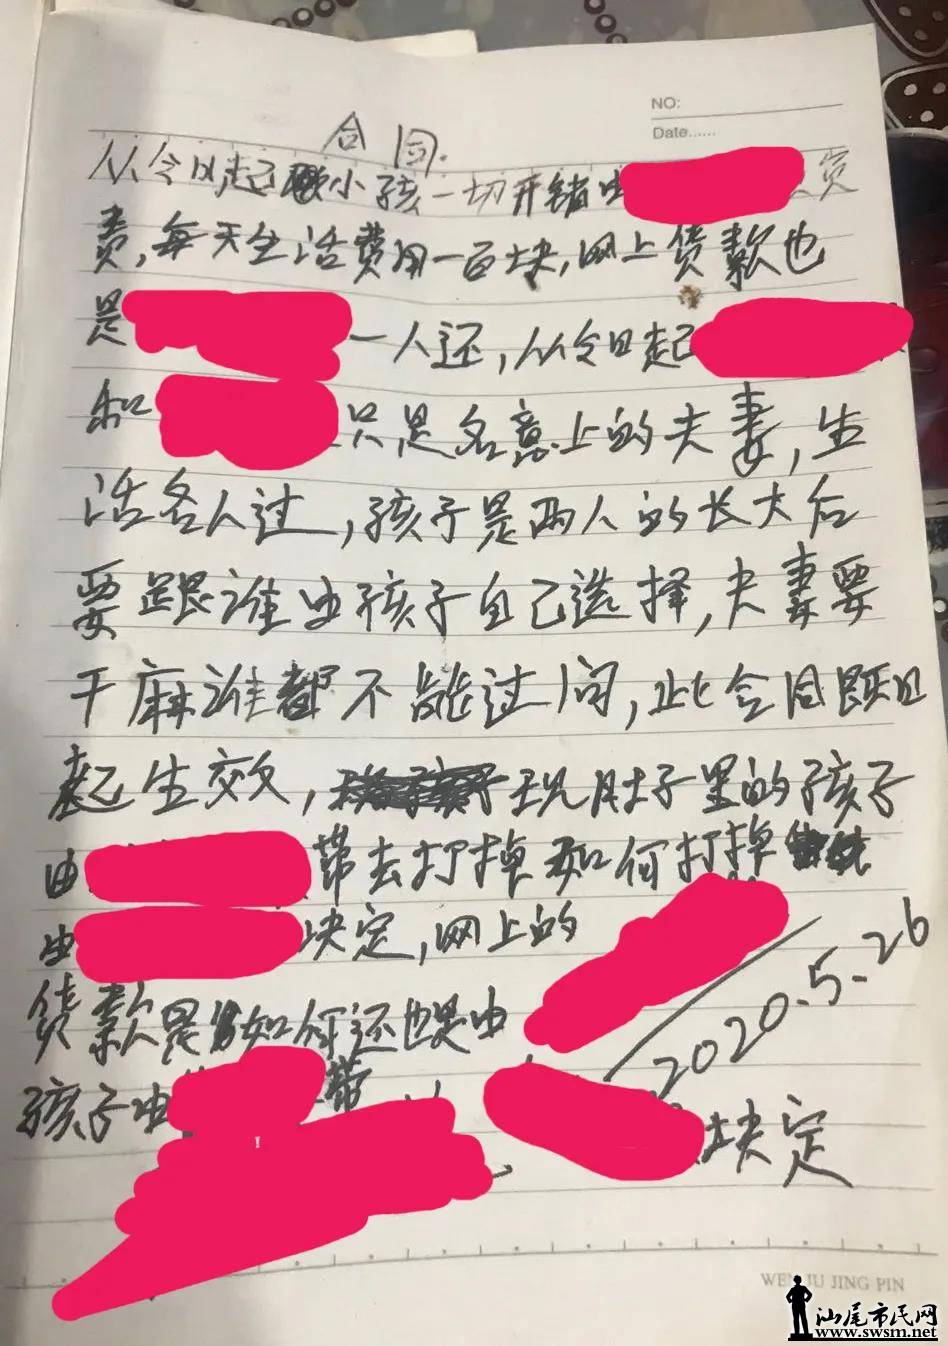 NO:
Date......
合同.
从今日起小孩一切开销由
责,每天生活费用一百块,网上货款也
是 一人还,从今日起
和 只是名意上的夫妻,生
活各人过,孩子是两人的长大后
要跟谁由孩子自己选择,夫妻要
干麻谁都不能过问,此合同既日
起生效, 现肚子里的孩子
由 带去打掉如何打掉
由 决定,网上的
货款是 如何还也是由
2020.5.26
孩子由 带
决定
WEN JU JING PIN
汕尾市民网
www.swsm.net